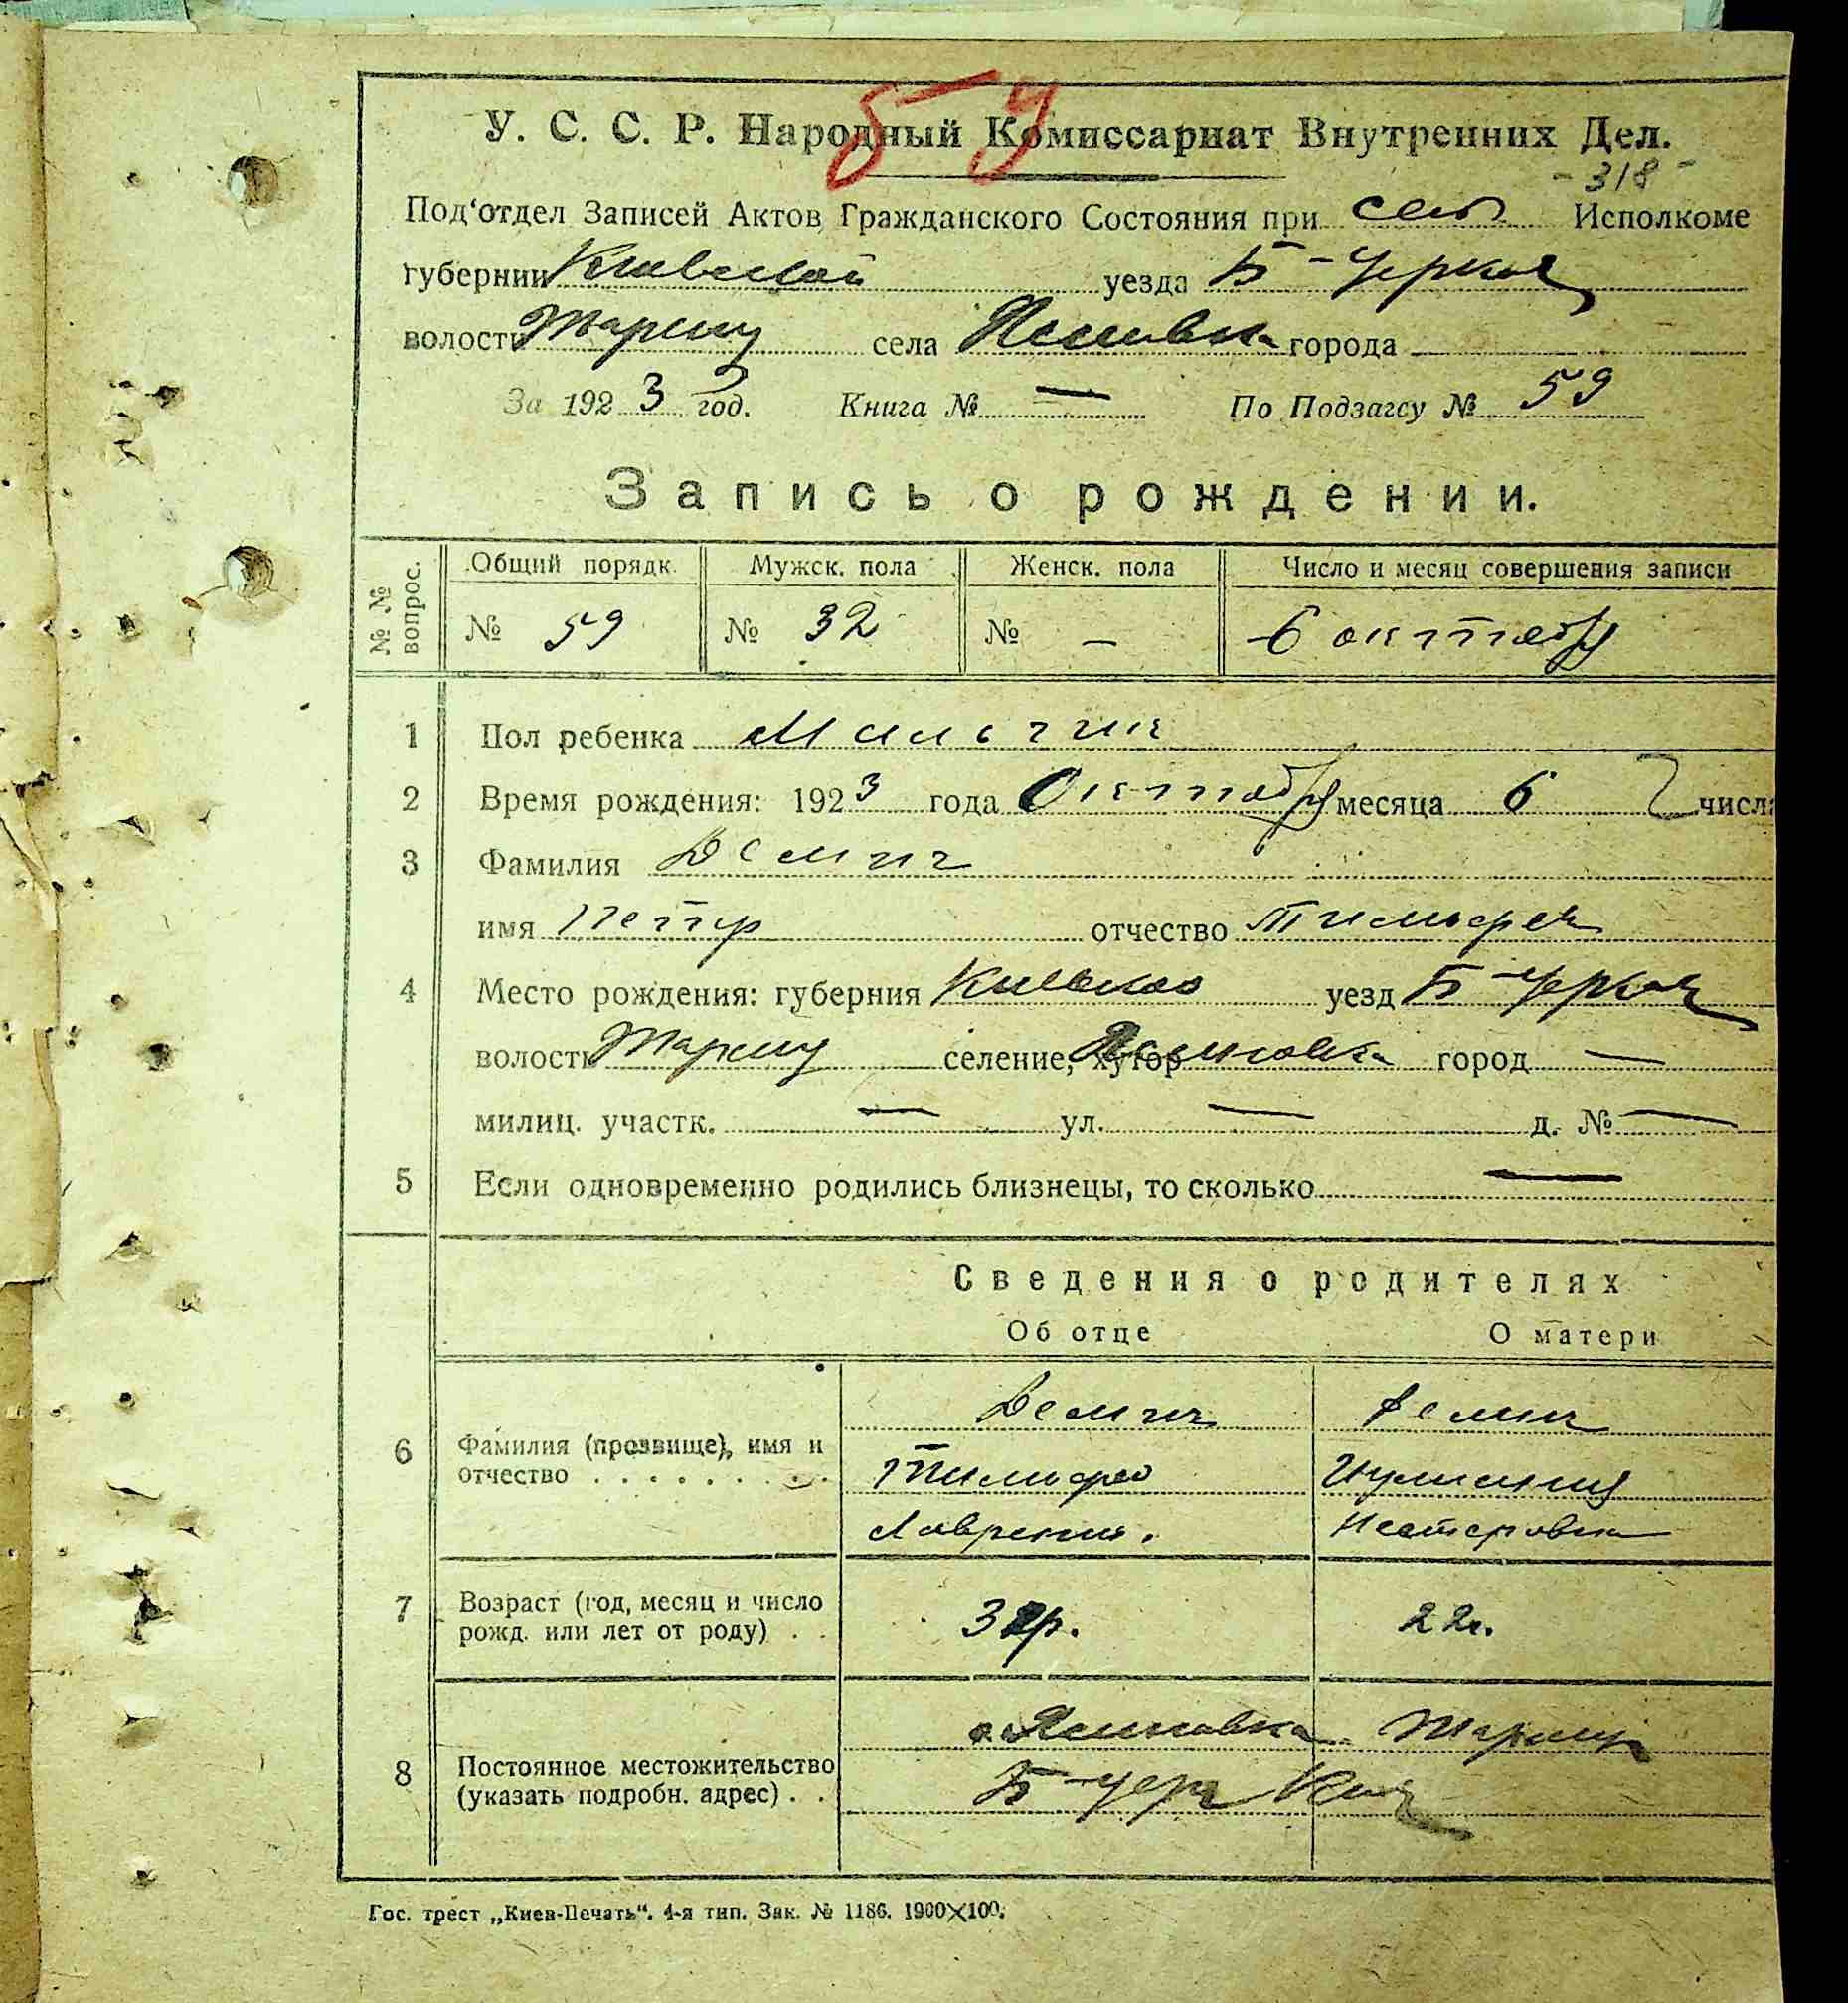 б у
У. С. С. Р. Народный Комиссариат Внутренних Дел.
- 318 -
Под‘отдел Записей Актов Гражданского Состояния при сель Исполкоме
губернии Киевской уезда Б-Церков
волости села города
За 1923 год. Книга № — По Подзагсу № 59
Запись о рождении.
№ № вопрос. Общий порядк. Мужск. пола Женск. пола Число и месяц совершения записи
№ 59 № 32 № — 6 октября
1 Пол ребенка Мальчик
2 Время рождения: 1923 года Октября месяца 6 числа
3 Фамилия Демич
имя Петр отчество Тимофеев
4 Место рождения: губерния Киевская уезд Б-Церков
волость селение, хутор город —
милиц. участк. — ул. — д. № —
5 Если одновременно родились близнецы, то сколько —
Сведения о родителях
Об отце О матери
6 Фамилия (прозвище), имя и отчество . . . . . . . . Демич Демич
Тимофей
Лаврентия. Нестеровна
7 Возраст (год, месяц и число рожд. или лет от роду) . . 22г.
8 Постоянное местожительство (указать подробн. адрес) . .
Б-Церк Киев
Гос. трест „Киев-Печать“. 4-я тип. Зак. № 1186. 1900×100.